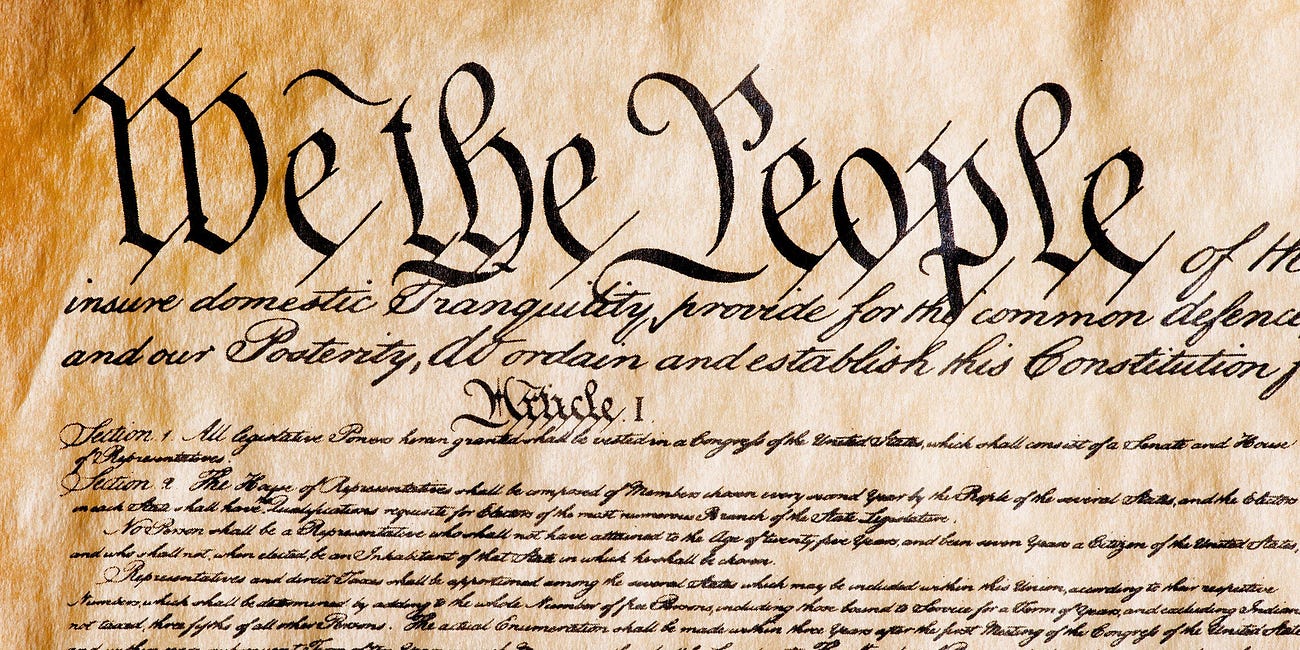 We the People of the
insure domestic Tranquility, provide for the common defence
and our Posterity, do ordain and establish this Constitution f
Article. I
Section. 1. All legislative Powers herein granted shall be vested in a Congress of the United States, which shall consist of a Senate and House
of Representatives.
Section. 2. The House of Representatives shall be composed of Members chosen every second Year by the People of the several States, and the Electors
in each State shall have the Qualifications requisite for Electors of the most numerous Branch of the State Legislature.
No Person shall be a Representative who shall not have attained to the Age of twenty five Years, and been seven Years a Citizen of the United States,
and who shall not, when elected, be an Inhabitant of that State in which he shall be chosen.
Representatives and direct Taxes shall be apportioned among the several States which may be included within this Union, according to their respective
Numbers, which shall be determined by adding to the whole Number of free Persons, including those bound to Service for a Term of Years, and excluding Indians
not taxed, three fifths of all other Persons. The actual Enumeration shall be made within three Years after the first Meeting of the Congress of the United States